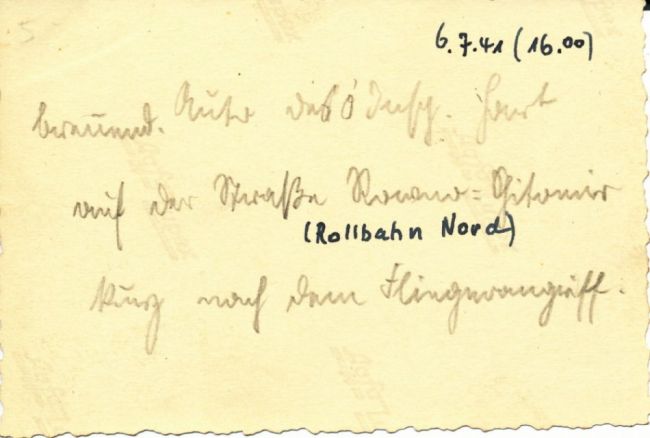 6.7.41 (16.00)
brennend. Auto des Insp.
auf der Straße Rowno=Shitomir
(Rollbahn Nord)
kurz nach dem Fliegerangriff.